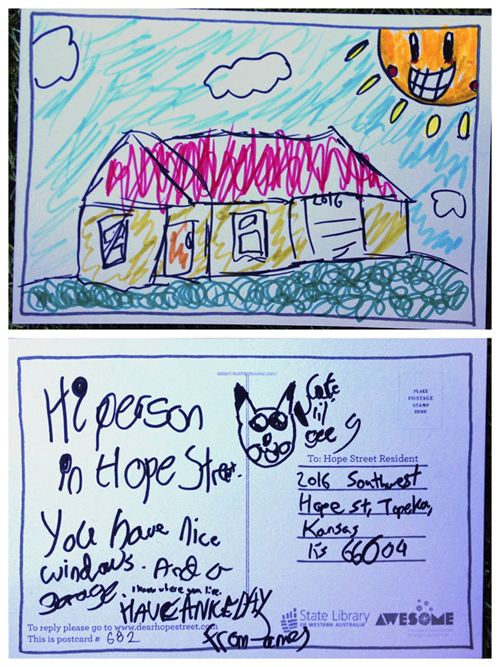 2016
Hi person
in Hope Street.
You have nice
windows. And a
garage. I know where you live.
HAVE A NICE DAY
from James
To reply please go to www.dearhopestreet.com
This is postcard # 682
Cute
lil
PLACE
POSTAGE
STAMP
HERE
To: Hope Street Resident
2016 Southwest
Hope st, Topeka,
Kansas
66604
State Library
OF WESTERN AUSTRALIA
AWESOME